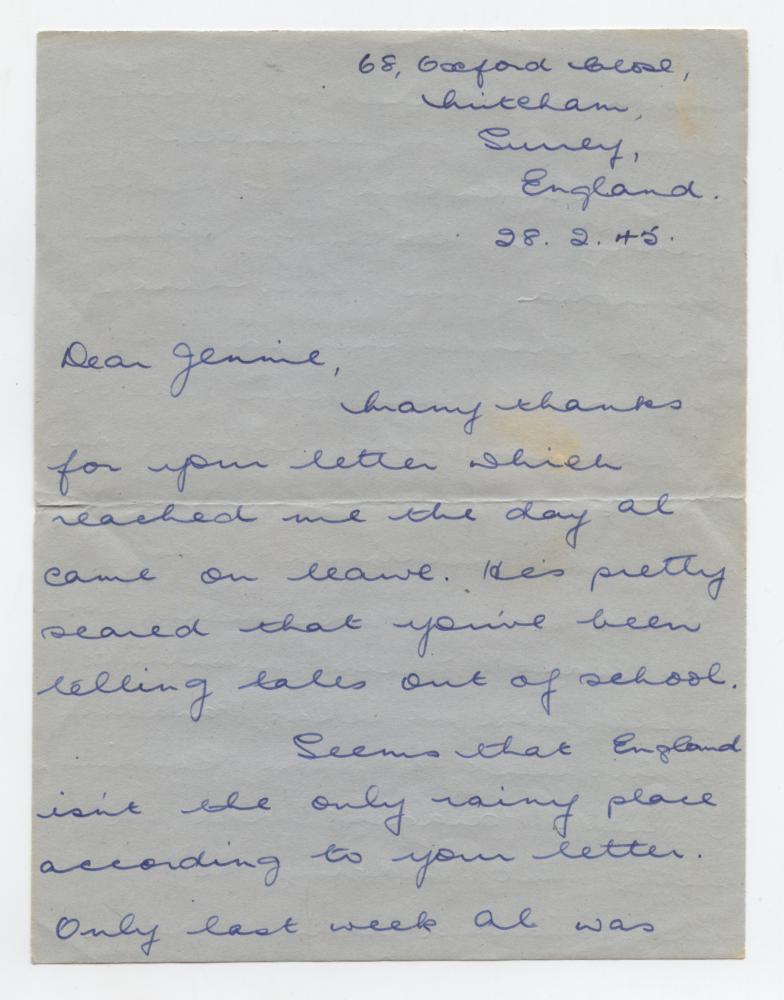 68, Oxford Close,
Mitcham,
Surrey,
England.
28. 2. 45.
Dear Jennie,
Many thanks
for your letter which
reached me the day Al
came on leave. He's pretty
scared that you've been
telling tales out of school.
Seems that England
isn't the only rainy place
according to your letter.
Only last week Al was